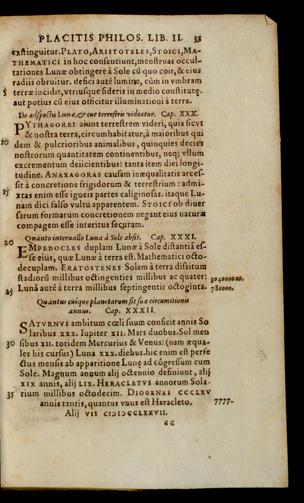 PLACITIS PHILOS. LIB. II. 35
exstinguitur. PLATO, ARISTOTELES, STOICI, MA-
THEMATICI in hoc consentiunt, menstruas occul-
tationes Lunæ obtingere à Sole cũ quo coit, & eius
radiis obruitur. defici autẽ lumine, cùm in vmbram
5 terræ incidit, vtriusque sideris in medio constitutę.
aut potius cũ eius officitur illuminationi à terra.
De aspectu Lunæ, & cur terrestris videatur. Cap. XXX.
PYTHAGOREI aiunt terrestrem videri, quia sicut
& nostra terra, circumhabitatur, à maioribus qui
10 dem & pulcrioribus animalibus, quinquies decies
nostrorum quantitatem continentibus, neq; vllum
excrementum deiicientibus: tanta item diei longi-
tudine. ANAXAGORAS causam inæqualitatis arces-
sit à concretione frigidorum & terrestrium: admi-
15 xtas enim esse igneis partes caliginosas. itaque Lu-
nam dici falso vultu apparentem. STOICI ob diuer
sarum formarum concretionem negant eius naturæ
compagem esse interitus securam.
Quanto interuallo Luna à Sole absit. Cap. XXXI.
20 EMPEDOCLES duplam Lunæ à Sole distantiã es-
se eius, quæ Lunæ à terra est. Mathematici octo-
decuplam. ERATOSTENES Solem à terra dissitum
stadiorũ millibus octingenties millibus ac quater:
25 Lunã autẽ à terra millibus septingenties octoginta. 780000.
Quantus cuique planetarum sit suæ circumitionis
annus. Cap. XXXII.
SATVRNVS ambitum cœli suum conficit annis So
laribus XXX. Iupiter XII. Mars duobus. Sol men
30 sibus XII. totidem Mercurius & Venus: (nam æqua-
les his cursus) Luna XXX. diebus. hic enim est perfe
ctus mensis ab apparitione Lunę ad cõgressum cum
Sole. Magnum annum alij octennio definiunt, alij
XIX annis, alij LIX. HERACLETVS annorum Sola-
35 rium millibus octodecim. DIOGENES CCCLXV
annis tantis, quantus vnus est Heracleto. 7777-
Alij VII CIƆIƆCCLXXVII.